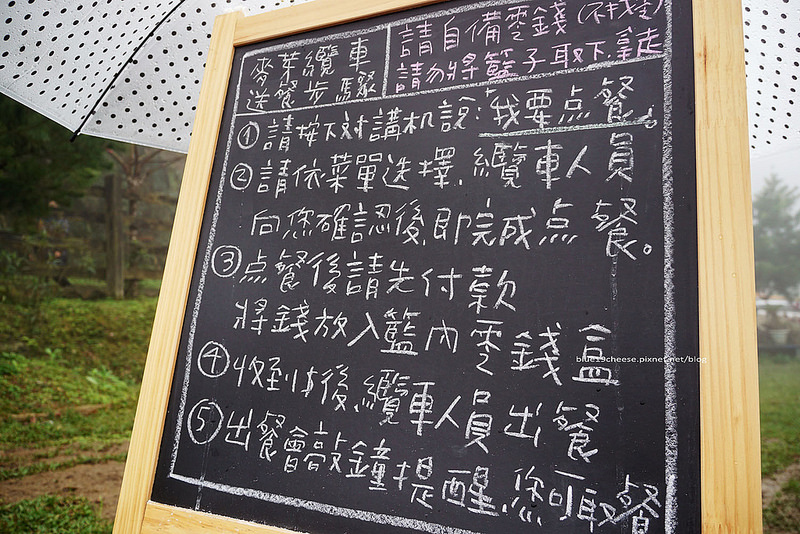 麥菜纜車
送餐步驟
請自備零錢(不找零)
請勿將籃子取下拿走
①請按下対講机說:我要点餐。
②請依菜單选擇,纜車人員
向您確認後,即完成点餐。
③点餐後請先付款
將錢放入籃內零錢盒
④收到$後,纜車人員出餐
⑤出餐會敲鐘提醒,您可取餐
blue19cheese.pixnet.net/blog